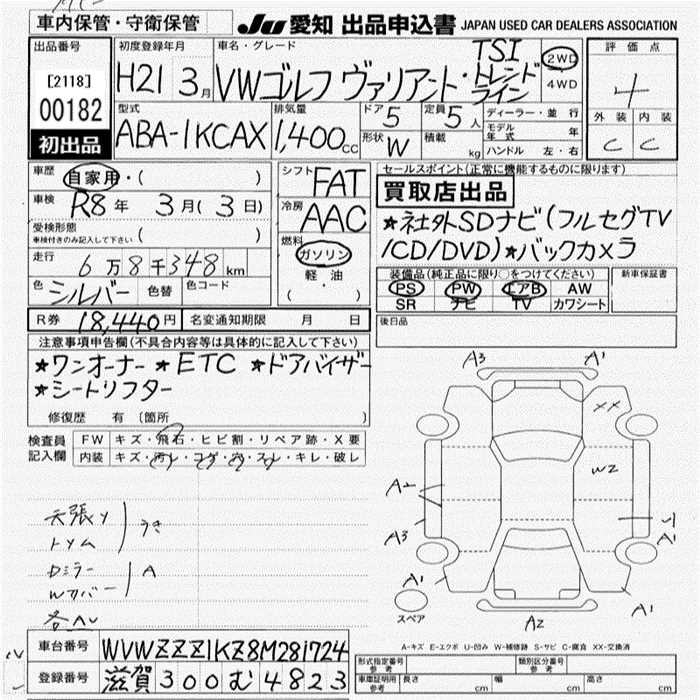 車内保管・守衛保管
JU 愛知 出品申込書 JAPAN USED CAR DEALERS ASSOCIATION
出品番号
[2118]
00182
初出品
初度登録年月
H21 3月
車名・グレード
VWゴルフ ヴァリアント・TSI
トレンド
ライン
2WD
4WD
評価点
4
外装 内装
C C
型式
ABA-1KCAX
排気量
1,400cc
ドア 5
定員 5人
形状 W
積載 kg
ディーラー・並行
モデル年式 年
ハンドル 左・右
車歴 自家用・( )
車検 R8年 3月(3日)
受検形態
車検付きのみ記入して下さい ( )
走行 6万8千348km
色 シルバー 色替 色コード
シフト FAT
冷房 AAC
燃料
ガソリン
軽油
( ・ )
セールスポイント(正常に機能するものに限ります)
買取店出品
★社外SDナビ(フルセグTV
/CD/DVD)★バックカメラ
装備品(純正品に限り○をつけてください)
PS PW エアB AW
SR ナビ TV カワシート
新車保証書
後日品
R券 18,440円 名変通知期限 月 日
注意事項申告欄(不具合内容等は具体的に記入して下さい)
★ワンオーナー ★ETC ★ドアバイザー
★シートリフター
修復歴 有 (箇所 )
検査員
記入欄
FW キズ・飛石・ヒビ割・リペア跡・X要
内装 キズ・汚レ・コゲ・穴・スレ・キレ・破レ
天張り
トリム
うき
Dミラー
Wカバー
A
A3 A1
XX
W2
A2
A3 A1
A1 A1
A2
スペア
A-キズ E-エクボ U-凹み W-補修跡 S-サビ C-腐食 XX-交換済
車台番号 WVWZZZ1KZ8M281724
登録番号 滋賀 300 む 4823
形式指定番号
参考
類別区分番号
参考
車庫証明用
参考
長さ cm 幅 cm 高さ cm